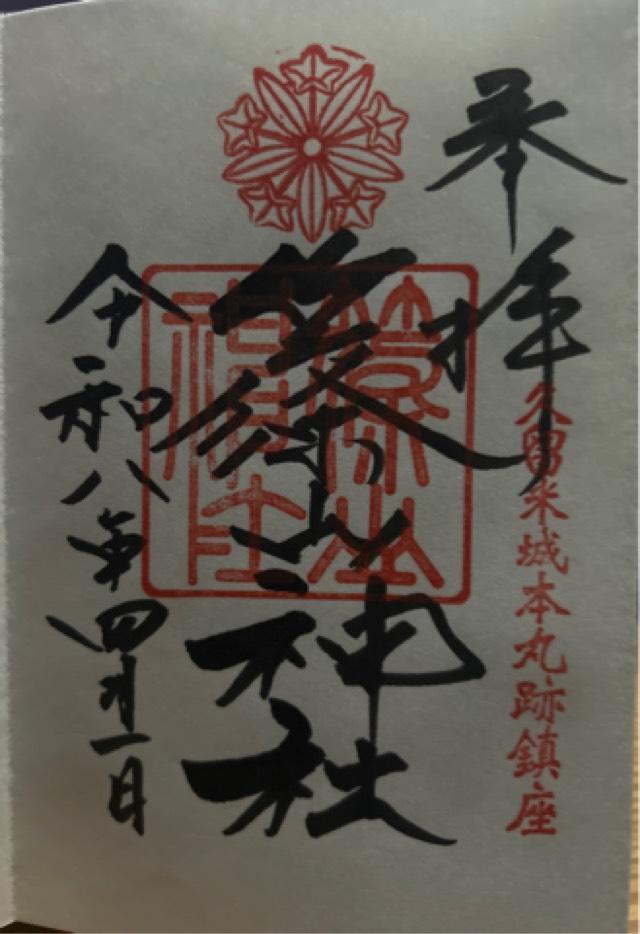 奉拝
久留米城本丸跡鎮座
篠山神社
篠山
神社
令和八年四月一日